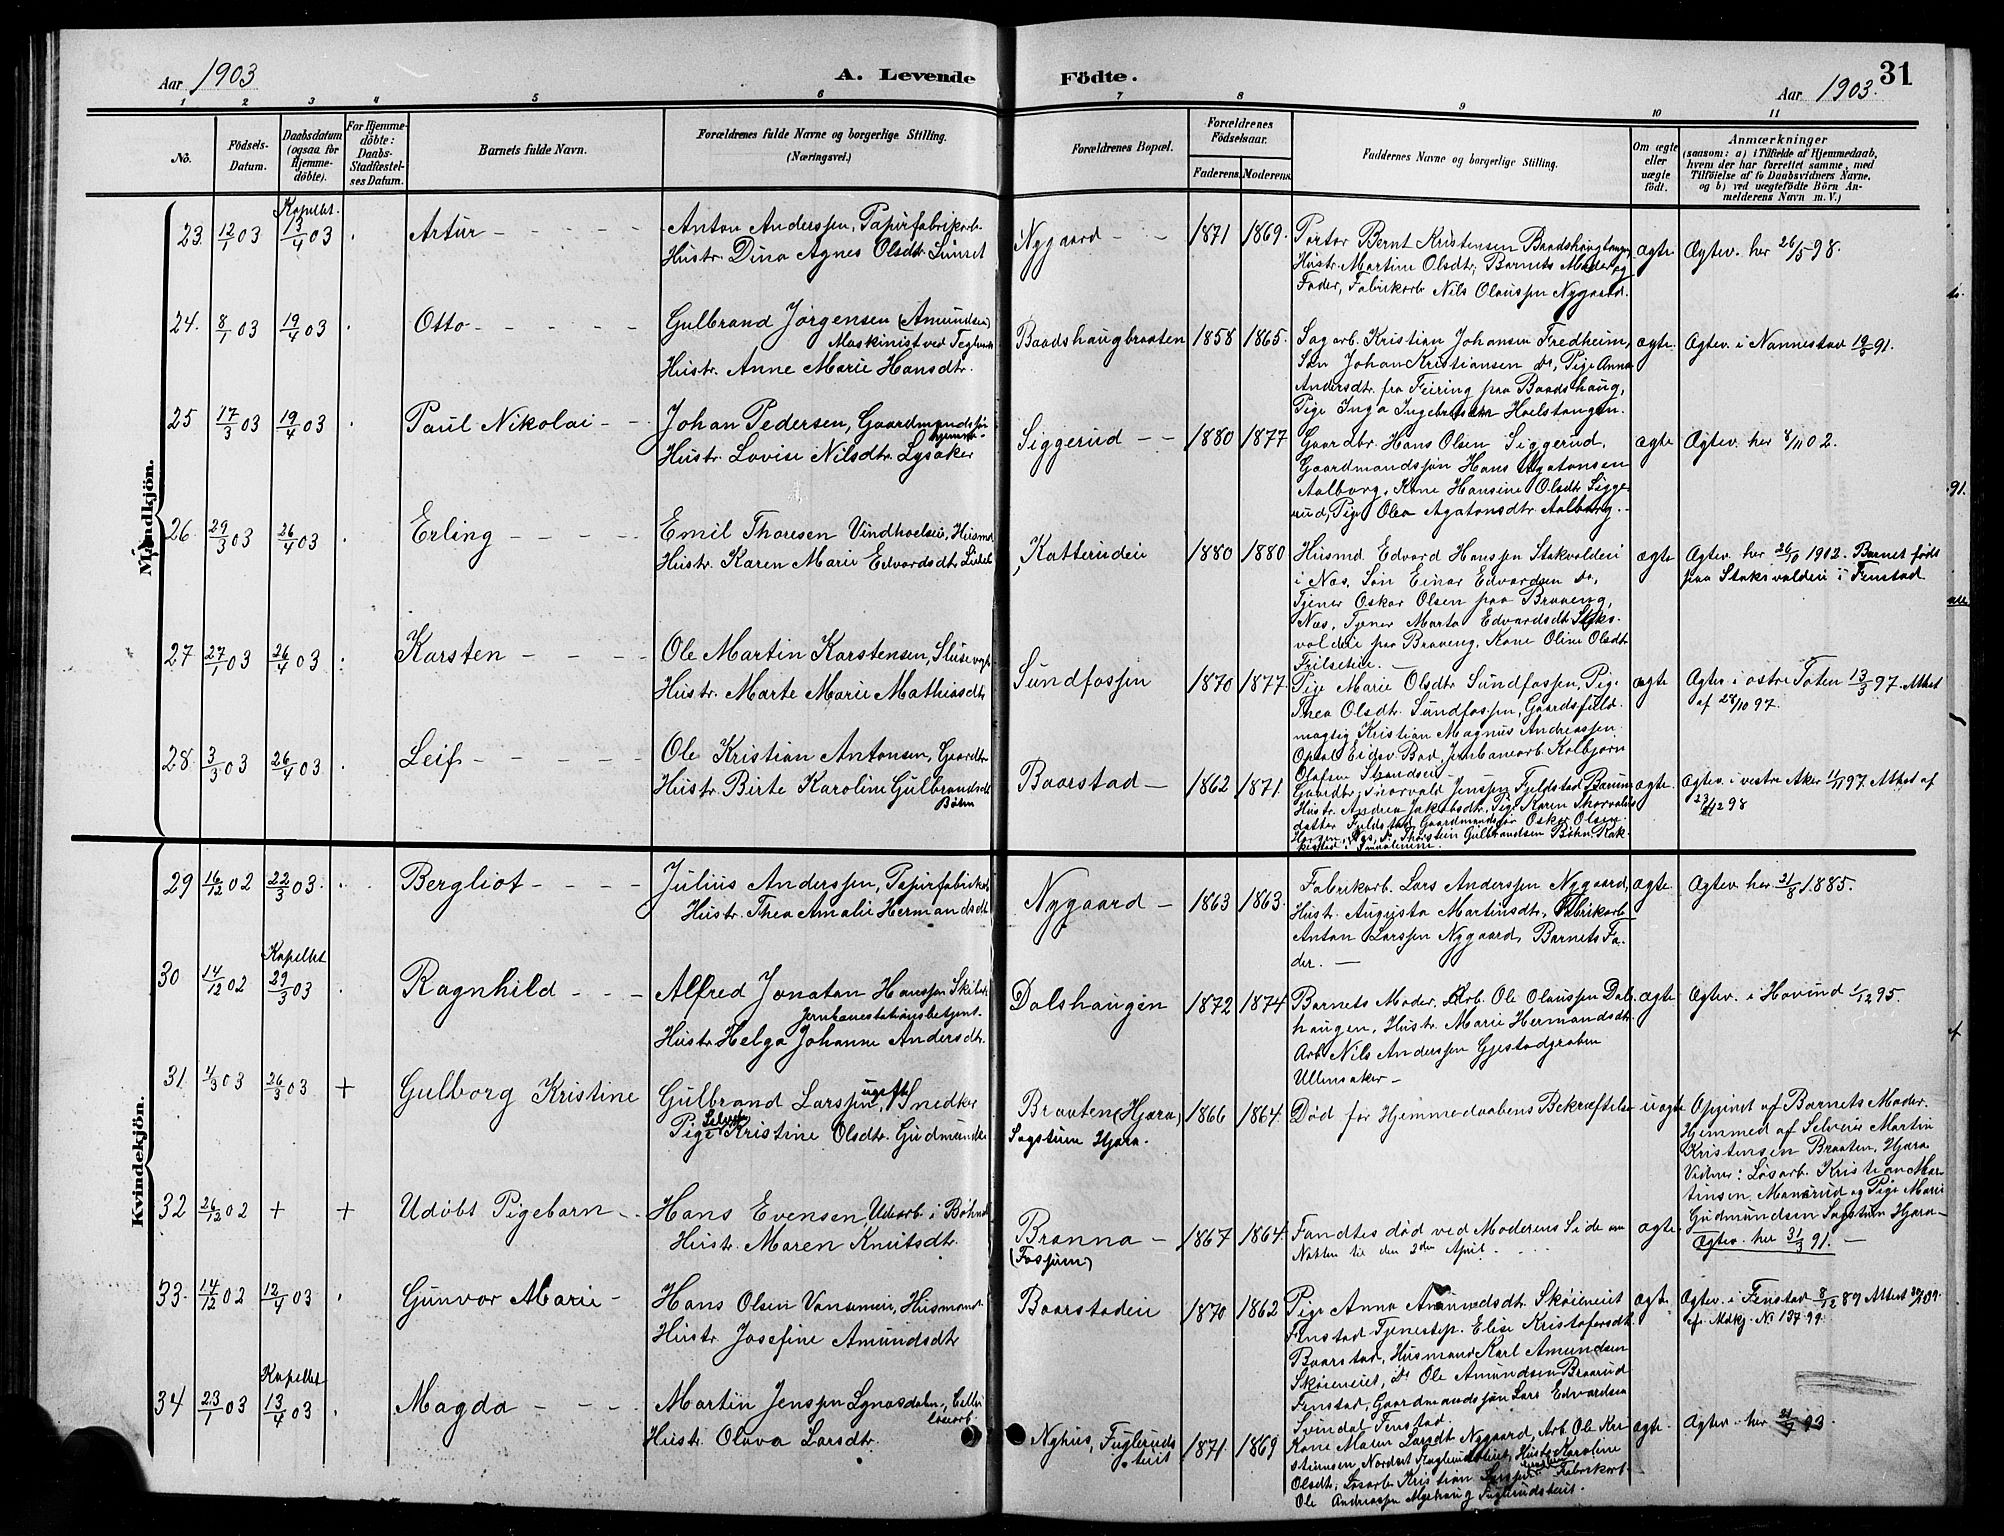 Aar 1903
A. Levende Födte.
Aar 1903.
31
1 2 3 4 5 6 7 8 9 10 11
No.
Födsels-
Datum.
Daabsdatum
(ogsaa for
Hjemme-
döbte).
For Hjemme-
döbte:
Daabs-
Stadfæstel-
ses Datum.
Barnets fulde Navn.
Forældrenes fulde Navne og borgerlige Stilling.
(Næringsvei.)
Forældrenes Bopæl.
Forældrenes
Födselsaar.
Faderens. Moderens.
Faddernes Navne og borgerlige Stilling.
Om ægte
eller
uægte
födt.
Anmærkninger
(saasom: a) i Tilfælde af Hjemmedaab,
hvem der har forrettet samme, med
Tilföielse af to Daabsvidners Navne,
og b) ved uægtefödte Börn An-
melderens Navn m. V.)
Mandkjön.
23. 12/1 03
Kapellet.
13/4 03
Artur
Anton Anderssen, Papirfabrikarb.
Hustr. Dina Agnes Olsdtr.
Nygaard
1871 1869.
Bernt Kristensen
Hustr. Martine Olsdtr, Barnets Moder og
Fader, Fabrikarb Nils Olaussen Nygaard.
ægte.
Ægtev. her 26/5 98.
24. 8/1 03 19/4 03
Otto
Gulbrand Jørgensen (Amundsen)
Maskinist ved
Hustr. Anne Marie Hansdtr.
Baadshaugbraaten
1858 1865.
Sagarb. Kristian Johansen Fredheim,
Søn Johan Kristiansen do, Pige Anna
Andersdtr. fra Feiring paa Baadshaug,
Pige Inga Hoelstangen.
ægte.
Ægtev. i Nannestad 91.
25 17/3 03 19/4 03
Paul Nikolai
Johan Pedersen, Gaardmandssøn
Hustr. Lovise Nilsdtr. Lysaker
Siggerud
1880 1877
Gaardbr. Hans Olsen Siggerud,
Gaardmandssøn Hans Agatonsen
Aalborg, Kone Hansine Olsdtr Sigge-
rud, Pige Olea Agatonsdtr Aalborg.
ægte
Ægtev. her 8/11 02.
26 29/3 03 26/4 03
Erling
Emil Thoresen Husmd
Hustr. Karen Marie Edvardsdtr
Katterudeie
1880 1880
Husmd Edvard Hanssen Stoksvaldeie
i Næs, Søn Einar Edvardsen do,
Tjener Oskar Olsen paa Braaeng,
Næs, Tjener Marta Edvardsdtr Stoks-
valdeie paa Braaeng, Kone Oline Olsdtr
Frilseteie.
ægte
Ægtev. her 26/10 1902. Barnet født
paa Stoksvaldeie i Fenstad
27 27/1 03 26/4 03
Karsten
Ole Martin Karstensen, Slusevogt
Hustr. Marte Marie Mathiasdtr
Sundfossen
1870 1877
Pige Marie Olsdtr Sundfossen, Pige
Thea Olsdtr. Sundfossen, Gaardsfuld-
mægtig Kristian Magnus Andreassen
Jernbanearb Kolbjørn
Olafsen
ægte
Ægtev i østre Toten 13/3 97. Attest
af 28/10 97.
28. 3/3 03 26/4 03
Leif
Ole Kristian Antonsen, Gaardbr
Hustr. Birte Karoline Gulbrandsdtr
Bøhn
Baarstad
1862 1871
Gaardbr. Thorvald Jenssen Fjeldstad
Hustr. Andrea Jakobsdtr, Pige Karen Thorvalds-
datter Fjeldstad, Gaardmandssøn Oskar Olsen
Thorstein Gulbrandsen Bøhn
ægte.
Ægtev. i vestre Aker 1/11 97. Attest af
23/12 98
Kvindekjön.
29 16/12 02 22/3 03.
Bergliot
Julius Anderssen, Papirfabrikarb
Hustr. Thea Amalie Hermandsdtr
Nygaard
1863 1863.
Fabrikarb. Lars Anderssen Nygaard,
Hustr. Augusta Martinsdtr, Fabrikarb
Anton Larssen Nygaard, Barnets Fa-
der.
ægte.
Ægtev her 21/8 1885.
30 14/12 02
Kapellet
29/3 03
Ragnhild
Alfred Jonatan Hanssen
Jernbanestationsbetjent
Hustr Helga Johanne Andersdtr.
Dalshaugen
1872 1874
Barnets Moder, Arb. Ole Olaussen Dals-
haugen, Hustr. Marie Hermandsdtr.
Arb Nils Anderssen Gjestadgraben
Ullensaker
ægte.
Ægtev. i Hovind 1/12 95.
31. 1/3 03 26/3 03 +
Gulborg Kristine
Gulbrand Larssen, ugift Snedker
Pige Kristine Olsdtr. Gudmundsen
Braaten (Hjara)
Sagstuen Hjara.
1866 1864.
Død før Hjemmedaabens Bekræftelse
uægte
Opgivet af Barnets Moder.
Hjemmed af Selveier Martin
Kristensen Braaten, Hjara
Vidner: Løsarb. Kristian Mar-
tinsen Monsrud og Pige Marie
Gudmundsen Sagstuen Hjara
32 26/12 02 + +
Udøbt Pigebarn
Hans Evensen,
Hustr. Maren Knutsdtr.
Branna
(Fossum)
1867 1864.
Fandtes død ved Moderens Side om
Natten til den 2den April.
ægte.
Ægtev. her 31/3 91.
33. 14/12 02 12/4 03
Gunvor Marie
Hans Olsen Husmand
Hustr Josefine Amundsdtr
Baarstadeie
1870 1862
Pige Anna Amundsdtr. Skøieneiet
Fenstad Tjenestep. Elise Kristofersdtr
Baarstad, Husmand Karl Amundsen
Skøieneiet, Do Ole Amundsen Braarud
Fenstad, Gaardmandssøn Lars Edvardsen
Svindal Fenstad.
ægt.
Ægtev. i Fenstad 8/12 89
34 23/1 03
Kapellet
13/4 03
Magda
Martin Jenssen
Hustr Olava Larsdtr.
Nyhus, Fuglerudsteiet
1871 1869
Kone Maren Larsdtr Nygaard, Arb Ole Kri-
stiansen, Nordset Fuglerudsteiet, Hustr Karoline
Olsdtr, Løsarb Kristian Fabrikarb.
Ole Andreassen Fuglerudsteiet.
ægte.
Ægtev. her 93.